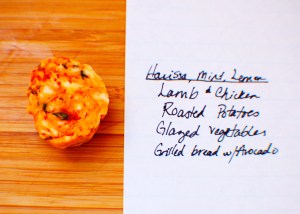 Harissa, Mint, Lemon
Lamb & Chicken
Roasted Potatoes
Glazed vegetables
Grilled bread w/Avocado